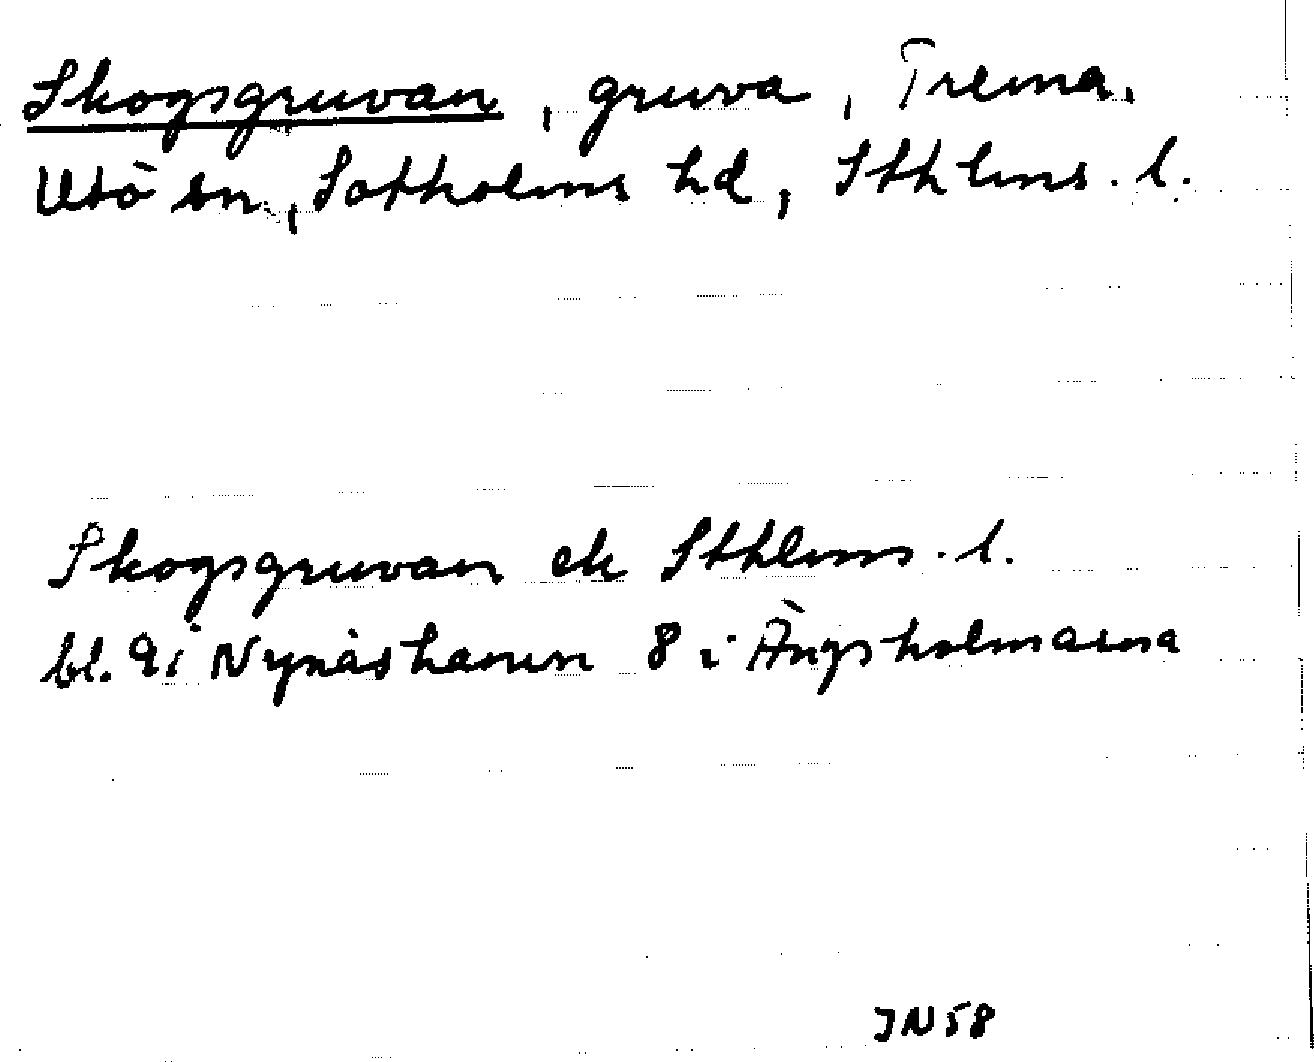 Skogsgruvan, gruva, Trema.
Utö sn, Sotholms hd, Sthlms. l.
Skogsgruvan ek Sthlms. l.
bl. 9 i Nynäshamn 8 i Ängsholmarna
JN58